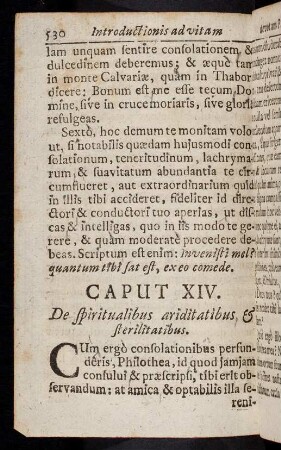 530 Introductionis ad vitam
lam unquam sentire consolationem, &
dulcedinem deberemus; & æquè tam
in monte Calvariæ, quàm in Thabor
dicere; Bonum est me esse tecum Do
mine, sive in cruce moriaris, sive gloriâ
refulgeas.
Sextò, hoc demum te monitam volo
ut, si notabilis quædam hujusmodi con
solationum, teneritudinum, lachryma
rum, & suavitatum abundantia te cir
cumflueret, aut extraordinarium quid
in illis tibi accideret, fideliter id dire-
ctori & conductori tuo aperias, ut dis
cas & intelligas, quo in iis modo te ge-
rere, & quàm moderatè procedere de-
beas. Scriptum est enim: invenisti mel?
quantum tibi sat est, ex eo comede.
CAPUT XIV.
De spiritualibus ariditatibus, &
sterilitatibus.
CUm ergò consolationibus perfun-
dèris, Philothea, id quod jamjam
consului & præscripsi, tibi erit ob-
servandum: at amica & optabilis illa se-
reni-